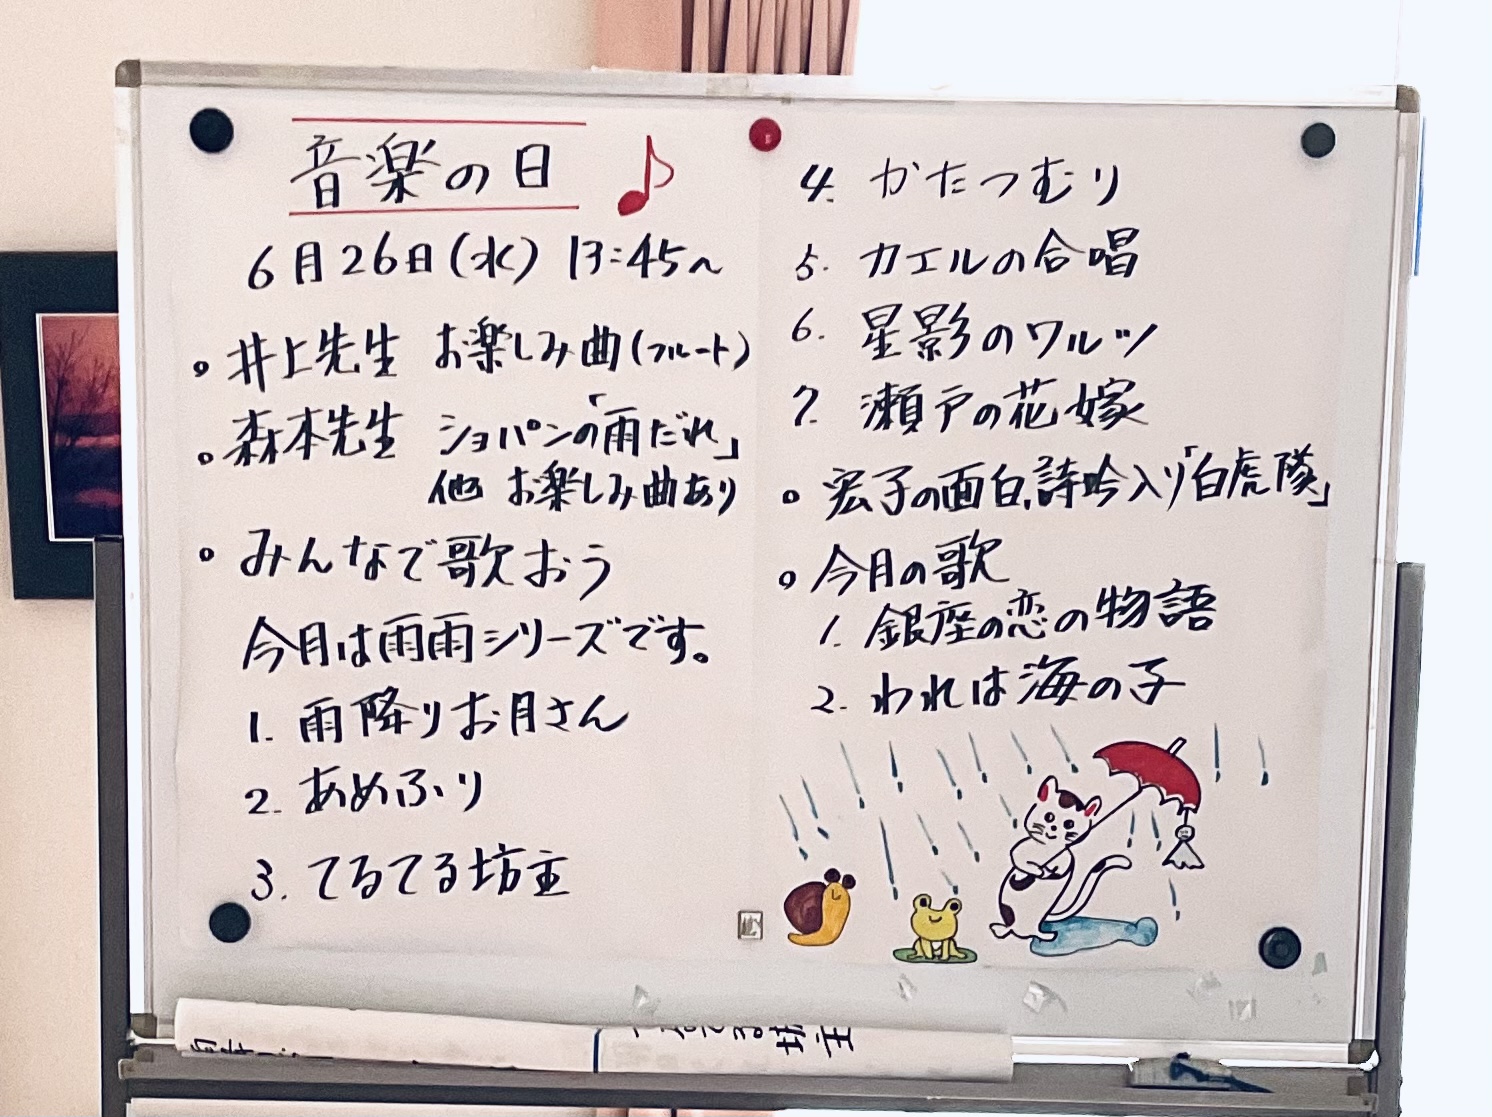 音楽の日
6月26日(水) 13:45〜
。井上先生 お楽しみ曲(フルート)
。森本先生 ショパンの「雨だれ」
他 お楽しみ曲あり
。みんなで歌おう
今月は雨雨シリーズです。
1. 雨降りお月さん
2. あめふり
3. てるてる坊主
4. かたつむり
5. カエルの合唱
6. 星影のワルツ
7. 瀬戸の花嫁
。宏子の面白,詩吟入り「白虎隊」
。今月の歌
1. 銀座の恋の物語
2. われは海の子